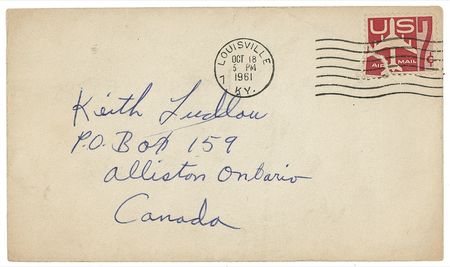 LOUISVILLE
OCT 18
5 PM
1961
KY.
US
7¢
AIR MAIL
Keith Ludlow
P.O. Box 159
Alliston Ontario
Canada